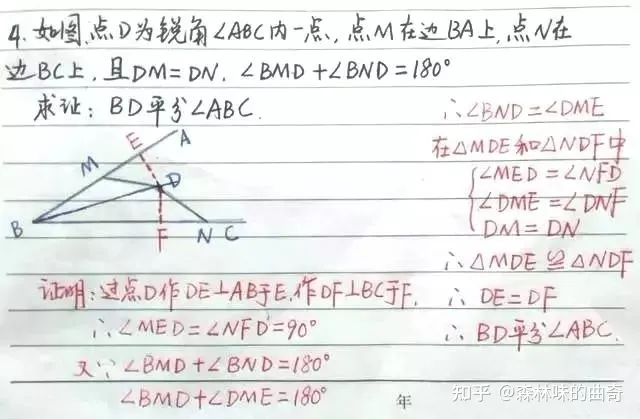 4. 如图,点D为锐角∠ABC内一点,点M在边BA上,点N在
边BC上,且DM=DN,∠BMD+∠BND=180°
求证:BD平分∠ABC.
E
A
M
D
B
F
N
C
证明:过点D作DE⊥AB于E,作DF⊥BC于F.
∴∠MED=∠NFD=90°
又∵∠BMD+∠BND=180°
∠BMD+∠DME=180°
∴∠BND=∠DME
在△MDE和△NDF中
∠MED=∠NFD
∠DME=∠DNF
DM=DN
∴△MDE≌△NDF
∴DE=DF
∴BD平分∠ABC.
年
知乎 @森林味的曲奇